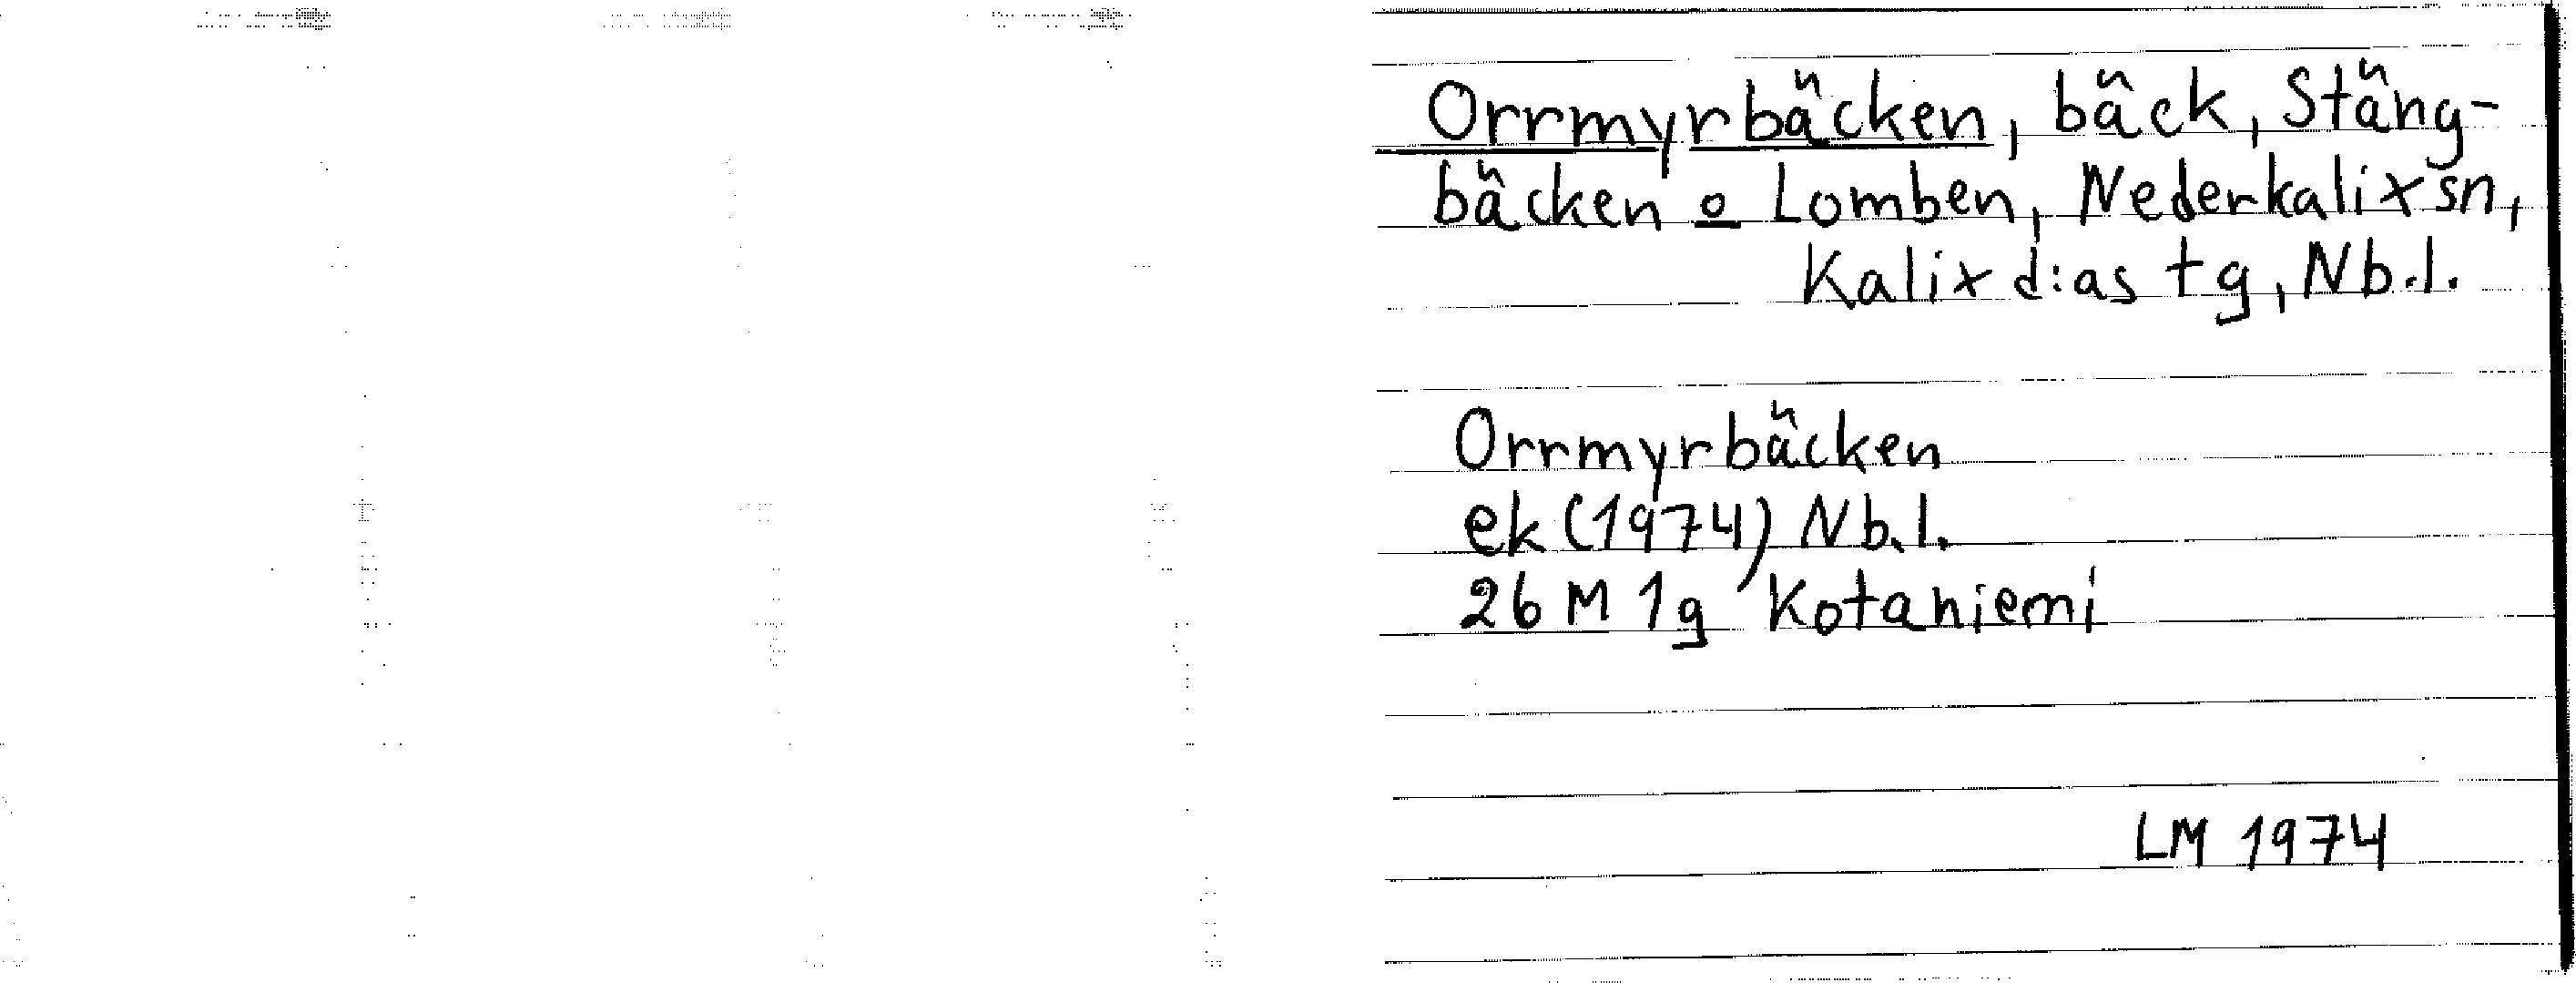 Orrmyrbäcken, bäck, Stäng-
bäcken o Lomben, Nederkalix sn,
Kalix d:as tg, Nb.l.
Orrmyrbäcken
ek (1974) Nb.l.
26 M 1g Kotaniemi
LM 1974